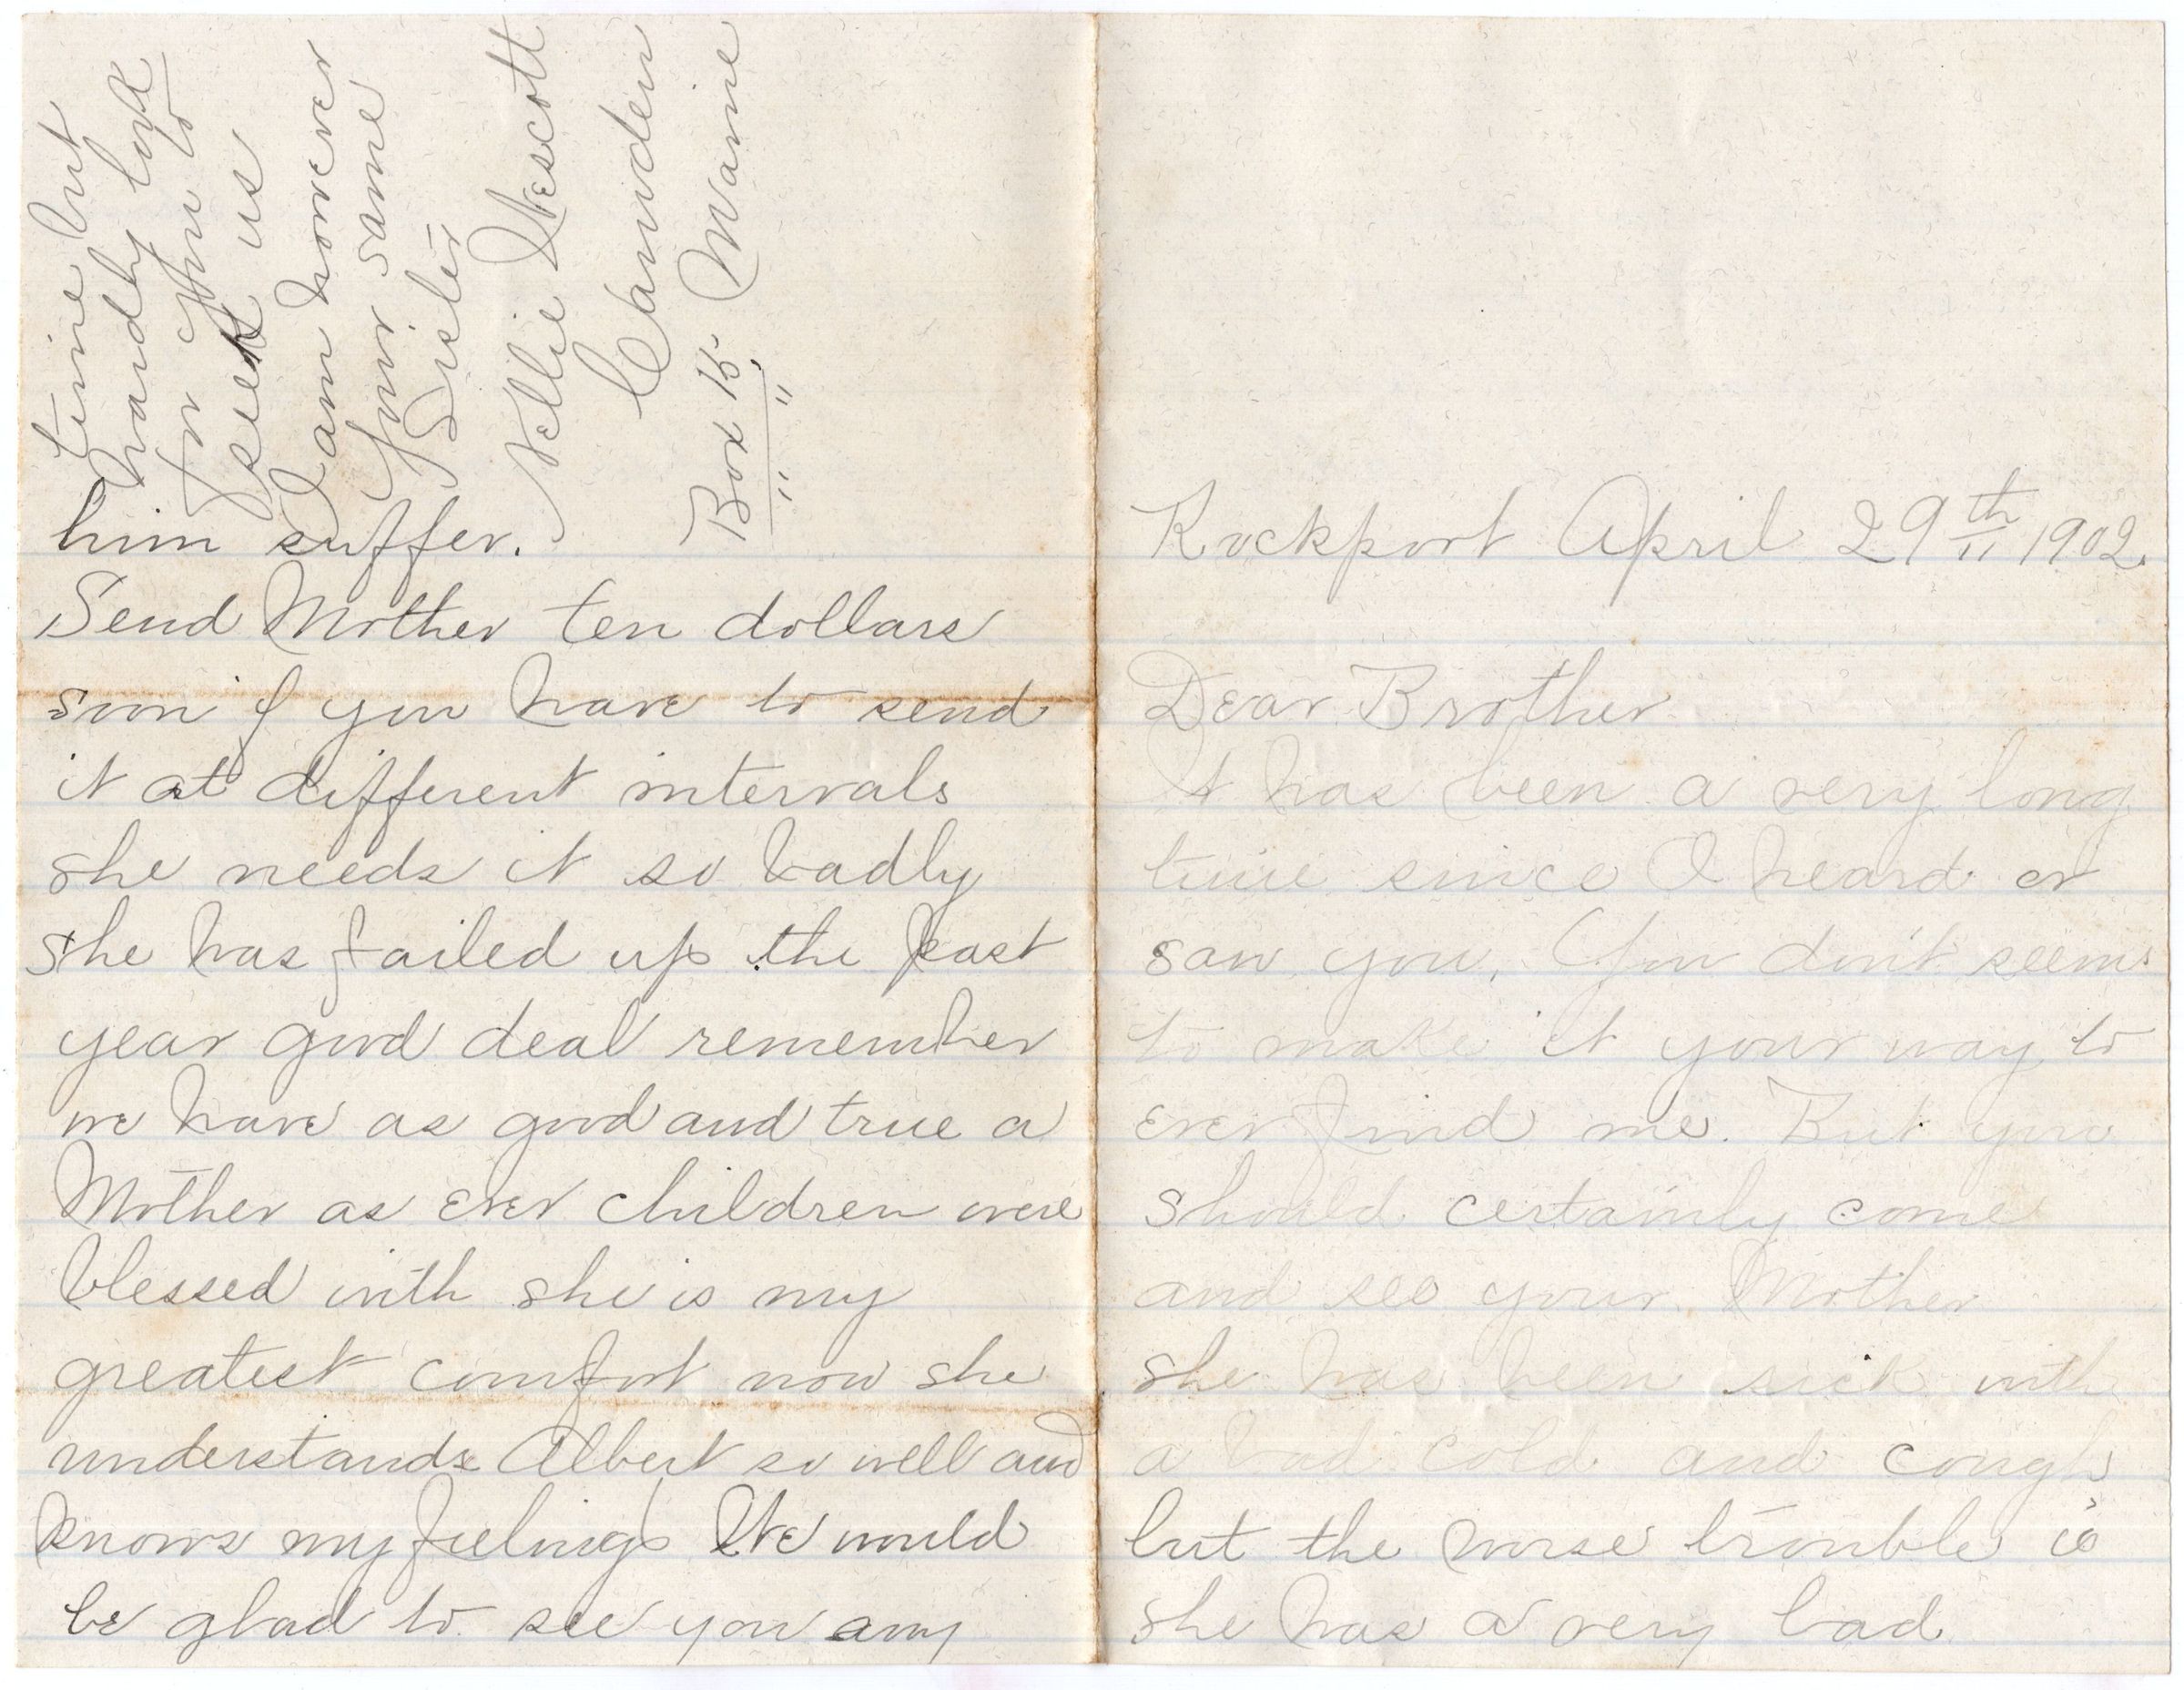 Rockport April 29th 1902.
Dear Brother
It has been a very long
time since I heard or
saw you. You don't seems
to make it your way to
ever find me. But you
should certainly come
and see your Mother
she has been sick with
a bad cold and cough
but the worse trouble is
she has a very bad
him suffer.
Send Mother ten dollars
soon if you have to send
it at different intervals
she needs it so badly
she has failed up the past
year good deal remember
we have as good and true a
Mother as ever children were
blessed with she is my
greatest comfort now she
understands Albert so well and
knows my feelings We would
be glad to see you any
time but
hardly look
for you to
seek us
I am however
your same
Sister
Nellie Wescott
Camden
Box 15. Maine